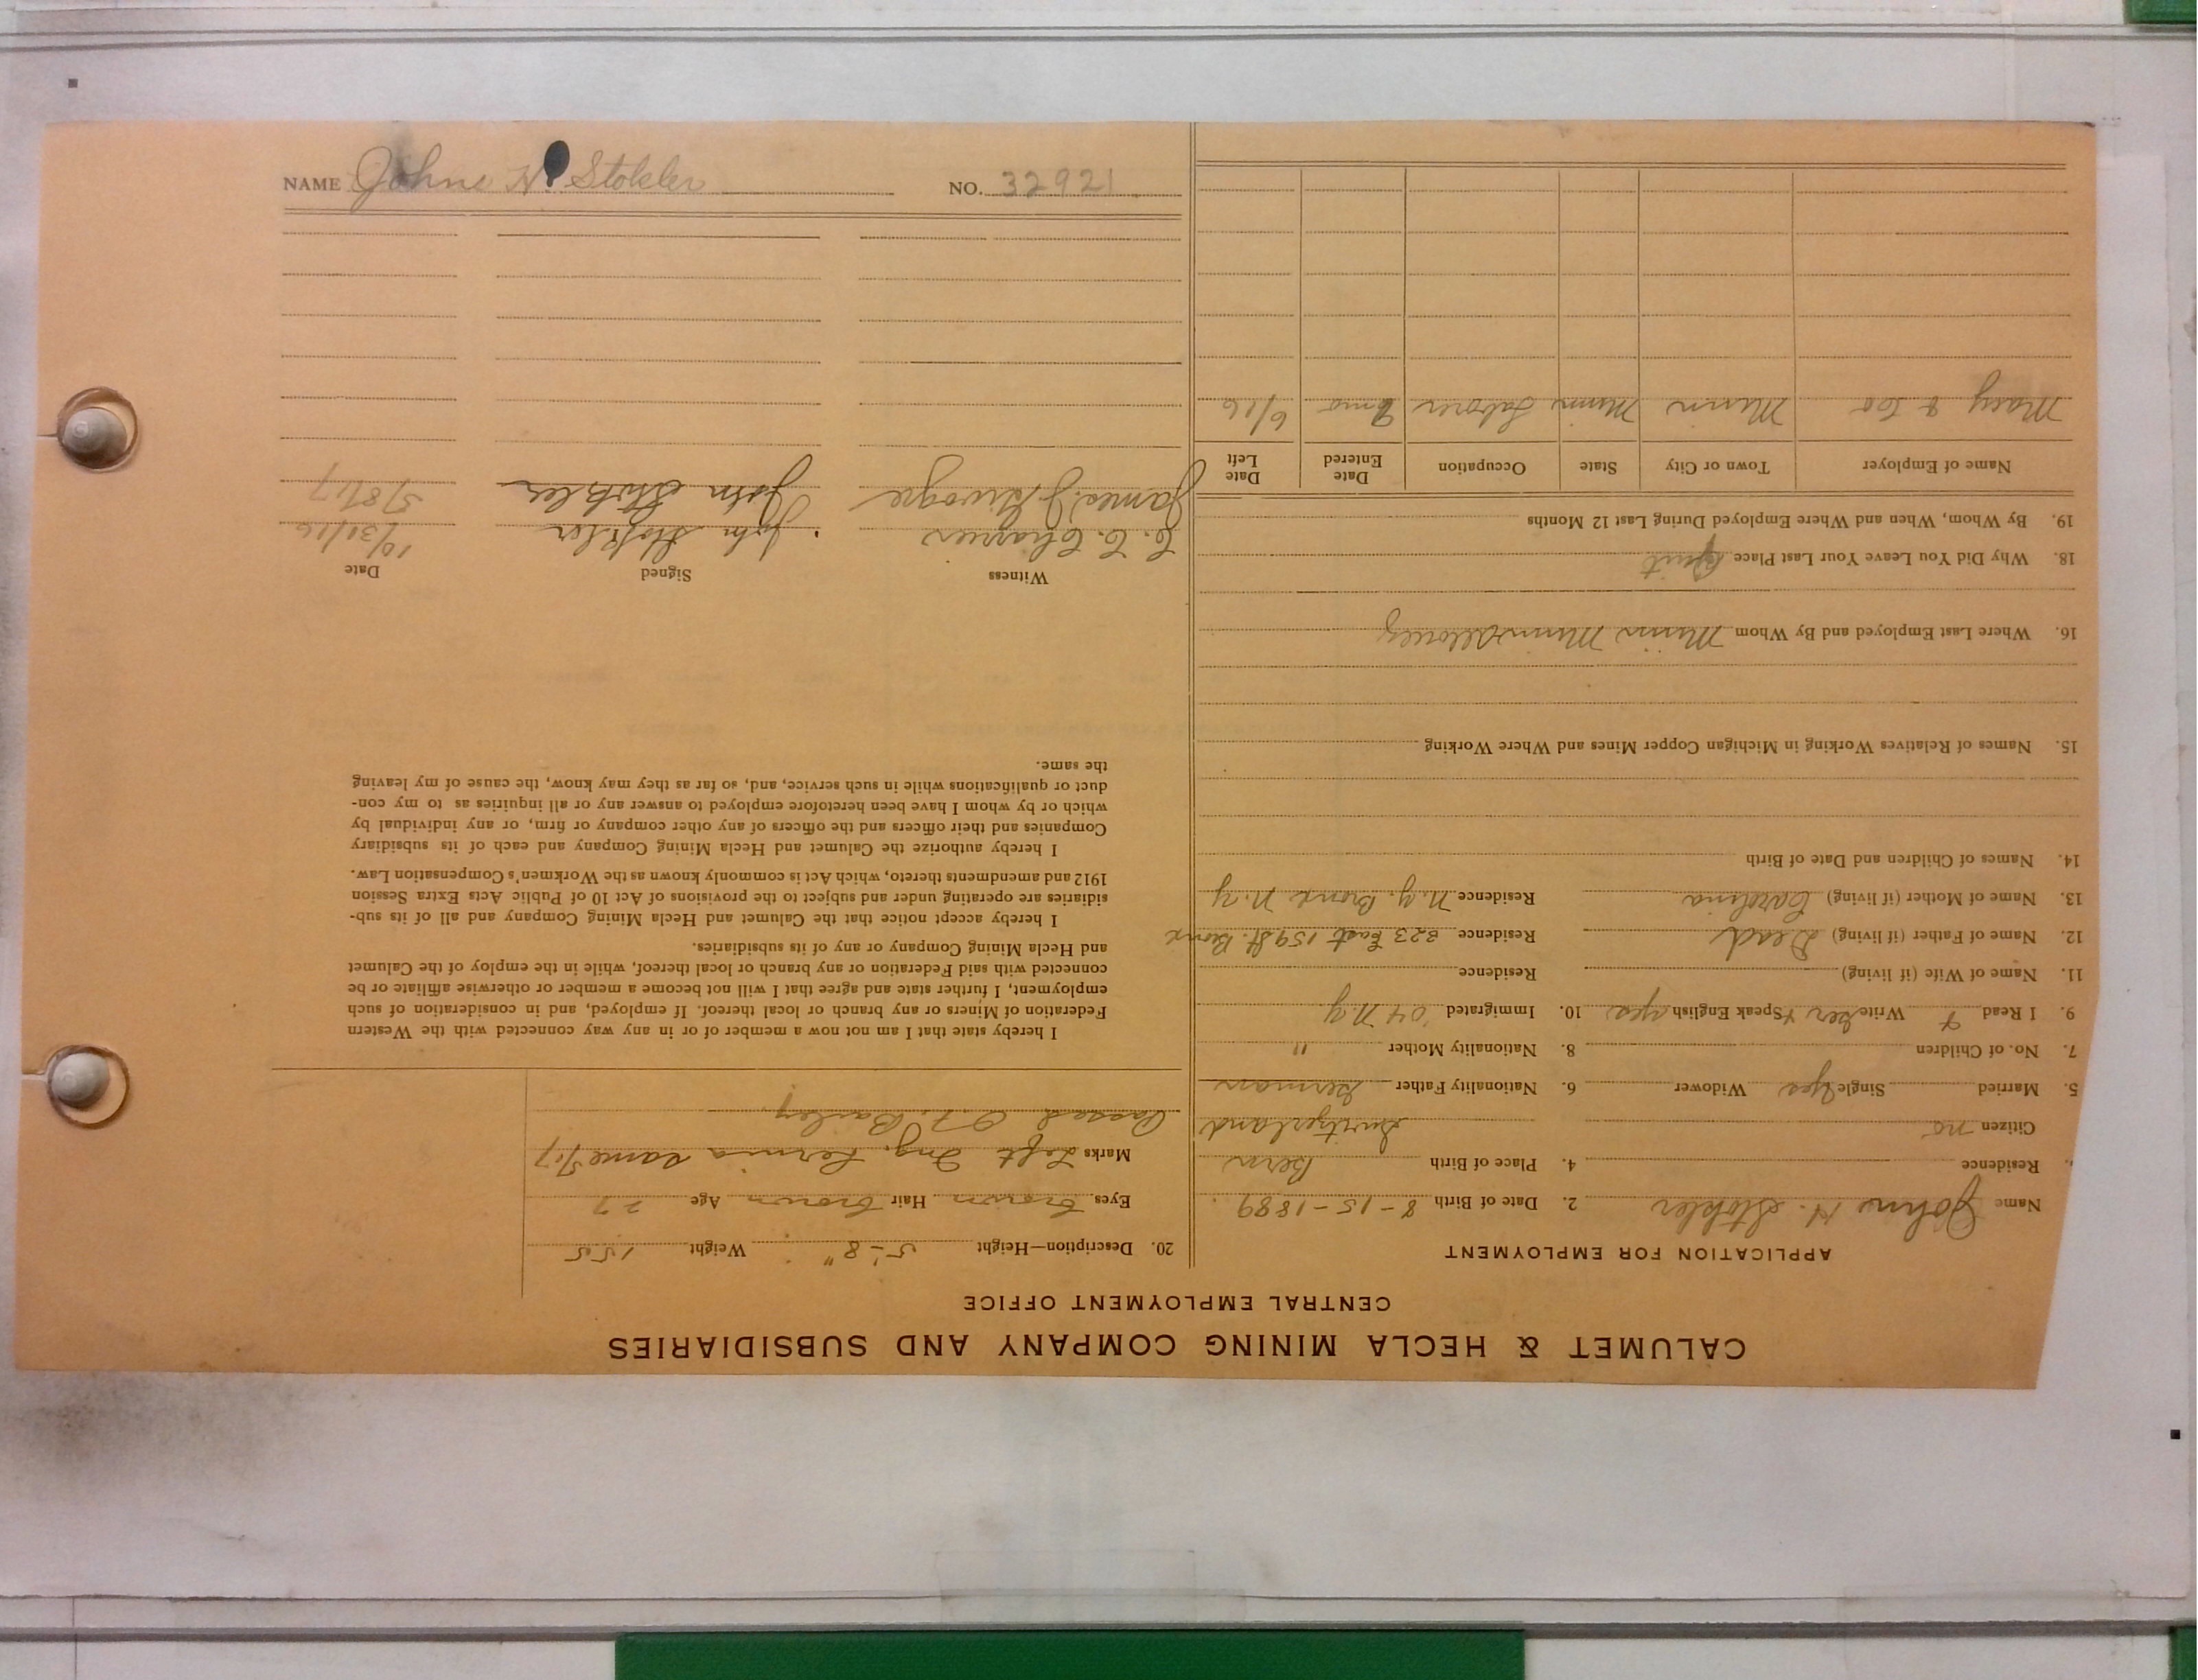 CALUMET & HECLA MINING COMPANY AND SUBSIDIARIES
CENTRAL EMPLOYMENT OFFICE
APPLICATION FOR EMPLOYMENT
Name Johns H. Stokler 2. Date of Birth 8-15-1889
Residence 4. Place of Birth Bern
Citizen no Switzerland
5. Married Single yes Widower 6. Nationality Father German
7. No. of Children 8. Nationality Mother "
9. I Read + Write Ger + Speak English yes 10. Immigrated '04 N.Y
11. Name of Wife (if living) Residence
12. Name of Father (if living) Dead Residence 323 East 159 St. Bronx
13. Name of Mother (if living) Carolina Residence N.Y. Bronx N.Y
14. Names of Children and Date of Birth
15. Names of Relatives Working in Michigan Copper Mines and Where Working
16. Where Last Employed and By Whom Minn
18. Why Did You Leave Your Last Place Quit
19. By Whom, When and Where Employed During Last 12 Months
Name of Employer Town or City State Occupation Date Entered Date Left
Macy & Coo Minn Minn Laborer 2 mo 6/16
20. Description—Height 5'-8" Weight 155
Eyes brown Hair brown Age 27
Marks Left Ing. Hernia same 5/17
Passed O.K. Bailey
I hereby state that I am not now a member of or in any way connected with the Western
Federation of Miners or any branch or local thereof. If employed, and in consideration of such
employment, I further state and agree that I will not become a member or otherwise affiliate or be
connected with said Federation or any branch or local thereof, while in the employ of the Calumet
and Hecla Mining Company or any of its subsidiaries.
I hereby accept notice that the Calumet and Hecla Mining Company and all of its sub-
sidiaries are operating under and subject to the provisions of Act 10 of Public Acts Extra Session
1912 and amendments thereto, which Act is commonly known as the Workmen's Compensation Law.
I hereby authorize the Calumet and Hecla Mining Company and each of its subsidiary
Companies and their officers and the officers of any other company or firm, or any individual by
which or by whom I have been heretofore employed to answer any or all inquiries as to my con-
duct or qualifications while in such service, and, so far as they may know, the cause of my leaving
the same.
Witness Signed Date
C. C. John Stokler 10/31/16
James J John Stokler 5/8/17
NAME Johns H. Stokler NO. 32921